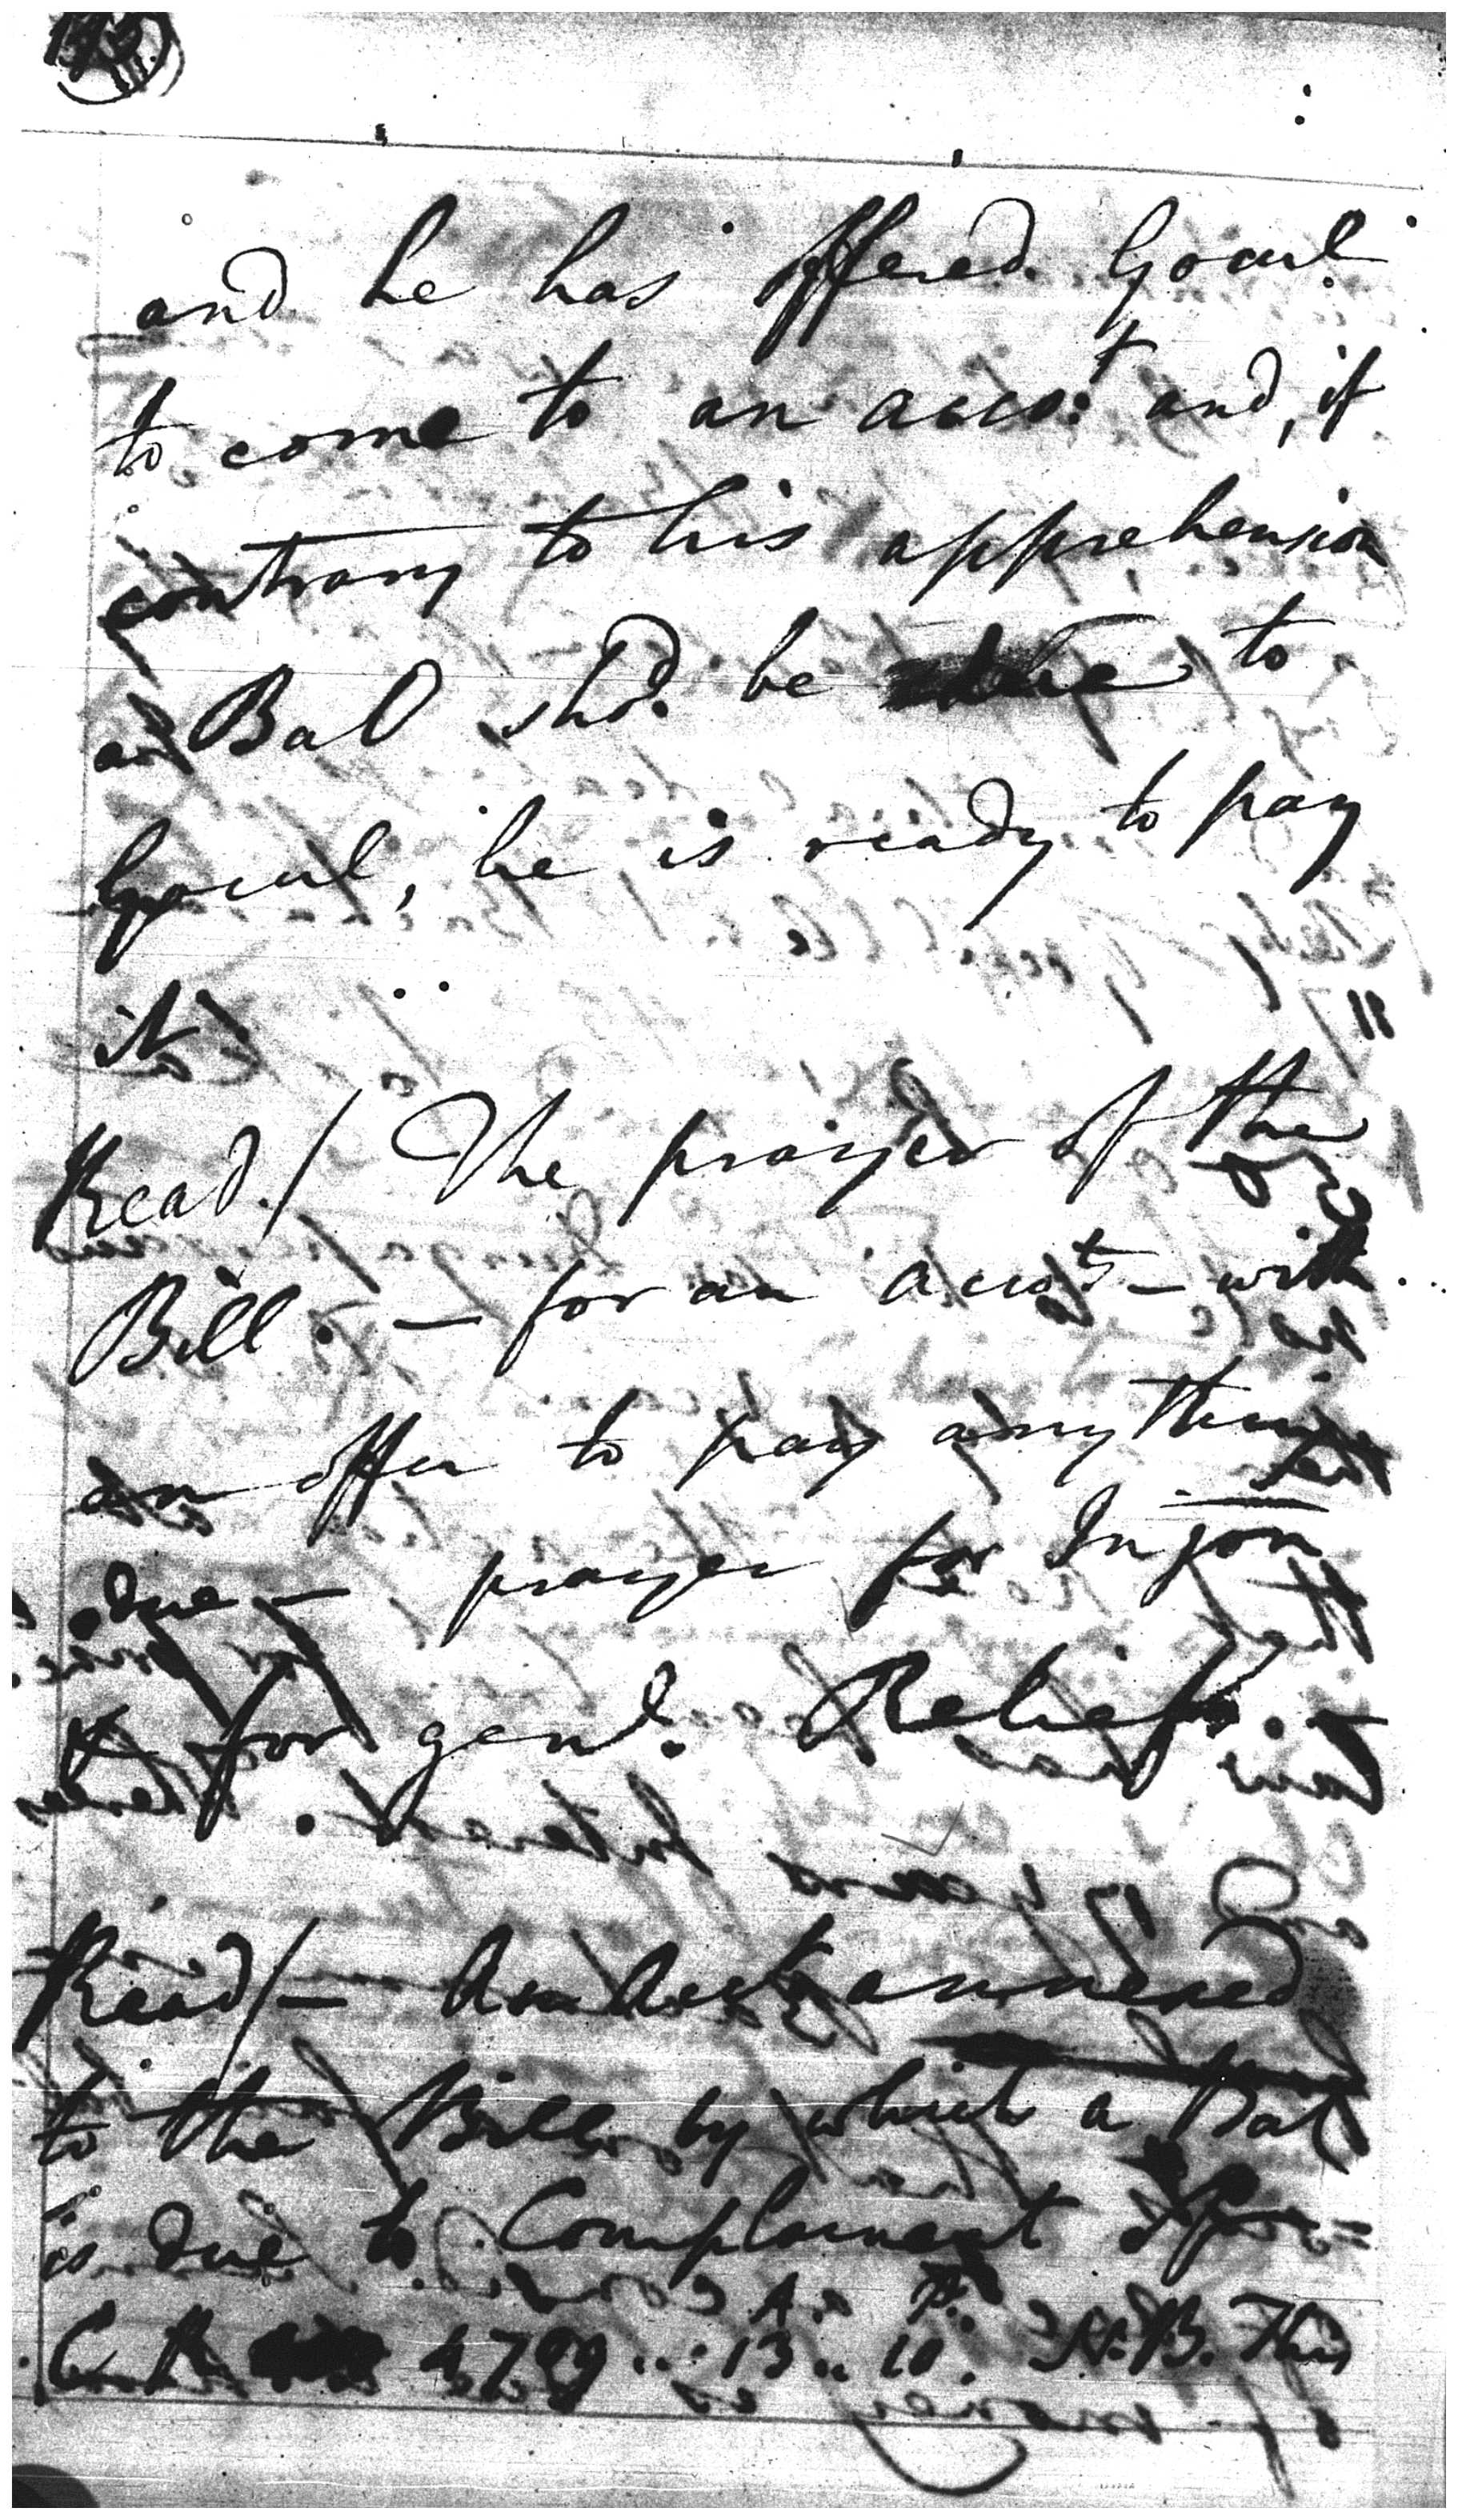 and he has offered Gocul
to come to an acco:t and, if
contrary to his apprehension
a Bal shod. be due to
Gocul, he is ready to pay
it
Read / The prayer of the
Bill. — for an accot — with
an offer to pay any thing
due — prayer for Injon
& for genl. Relief.
Read / — An Acct annexed
to the Bill by which a Bal
is due to Complainant of
A. P.
C. R 4799 .. 13 .. 10. N.B. This